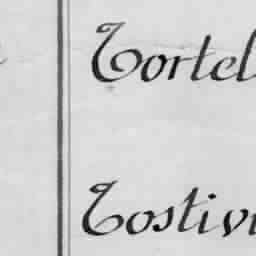 Tortel
Tostivi